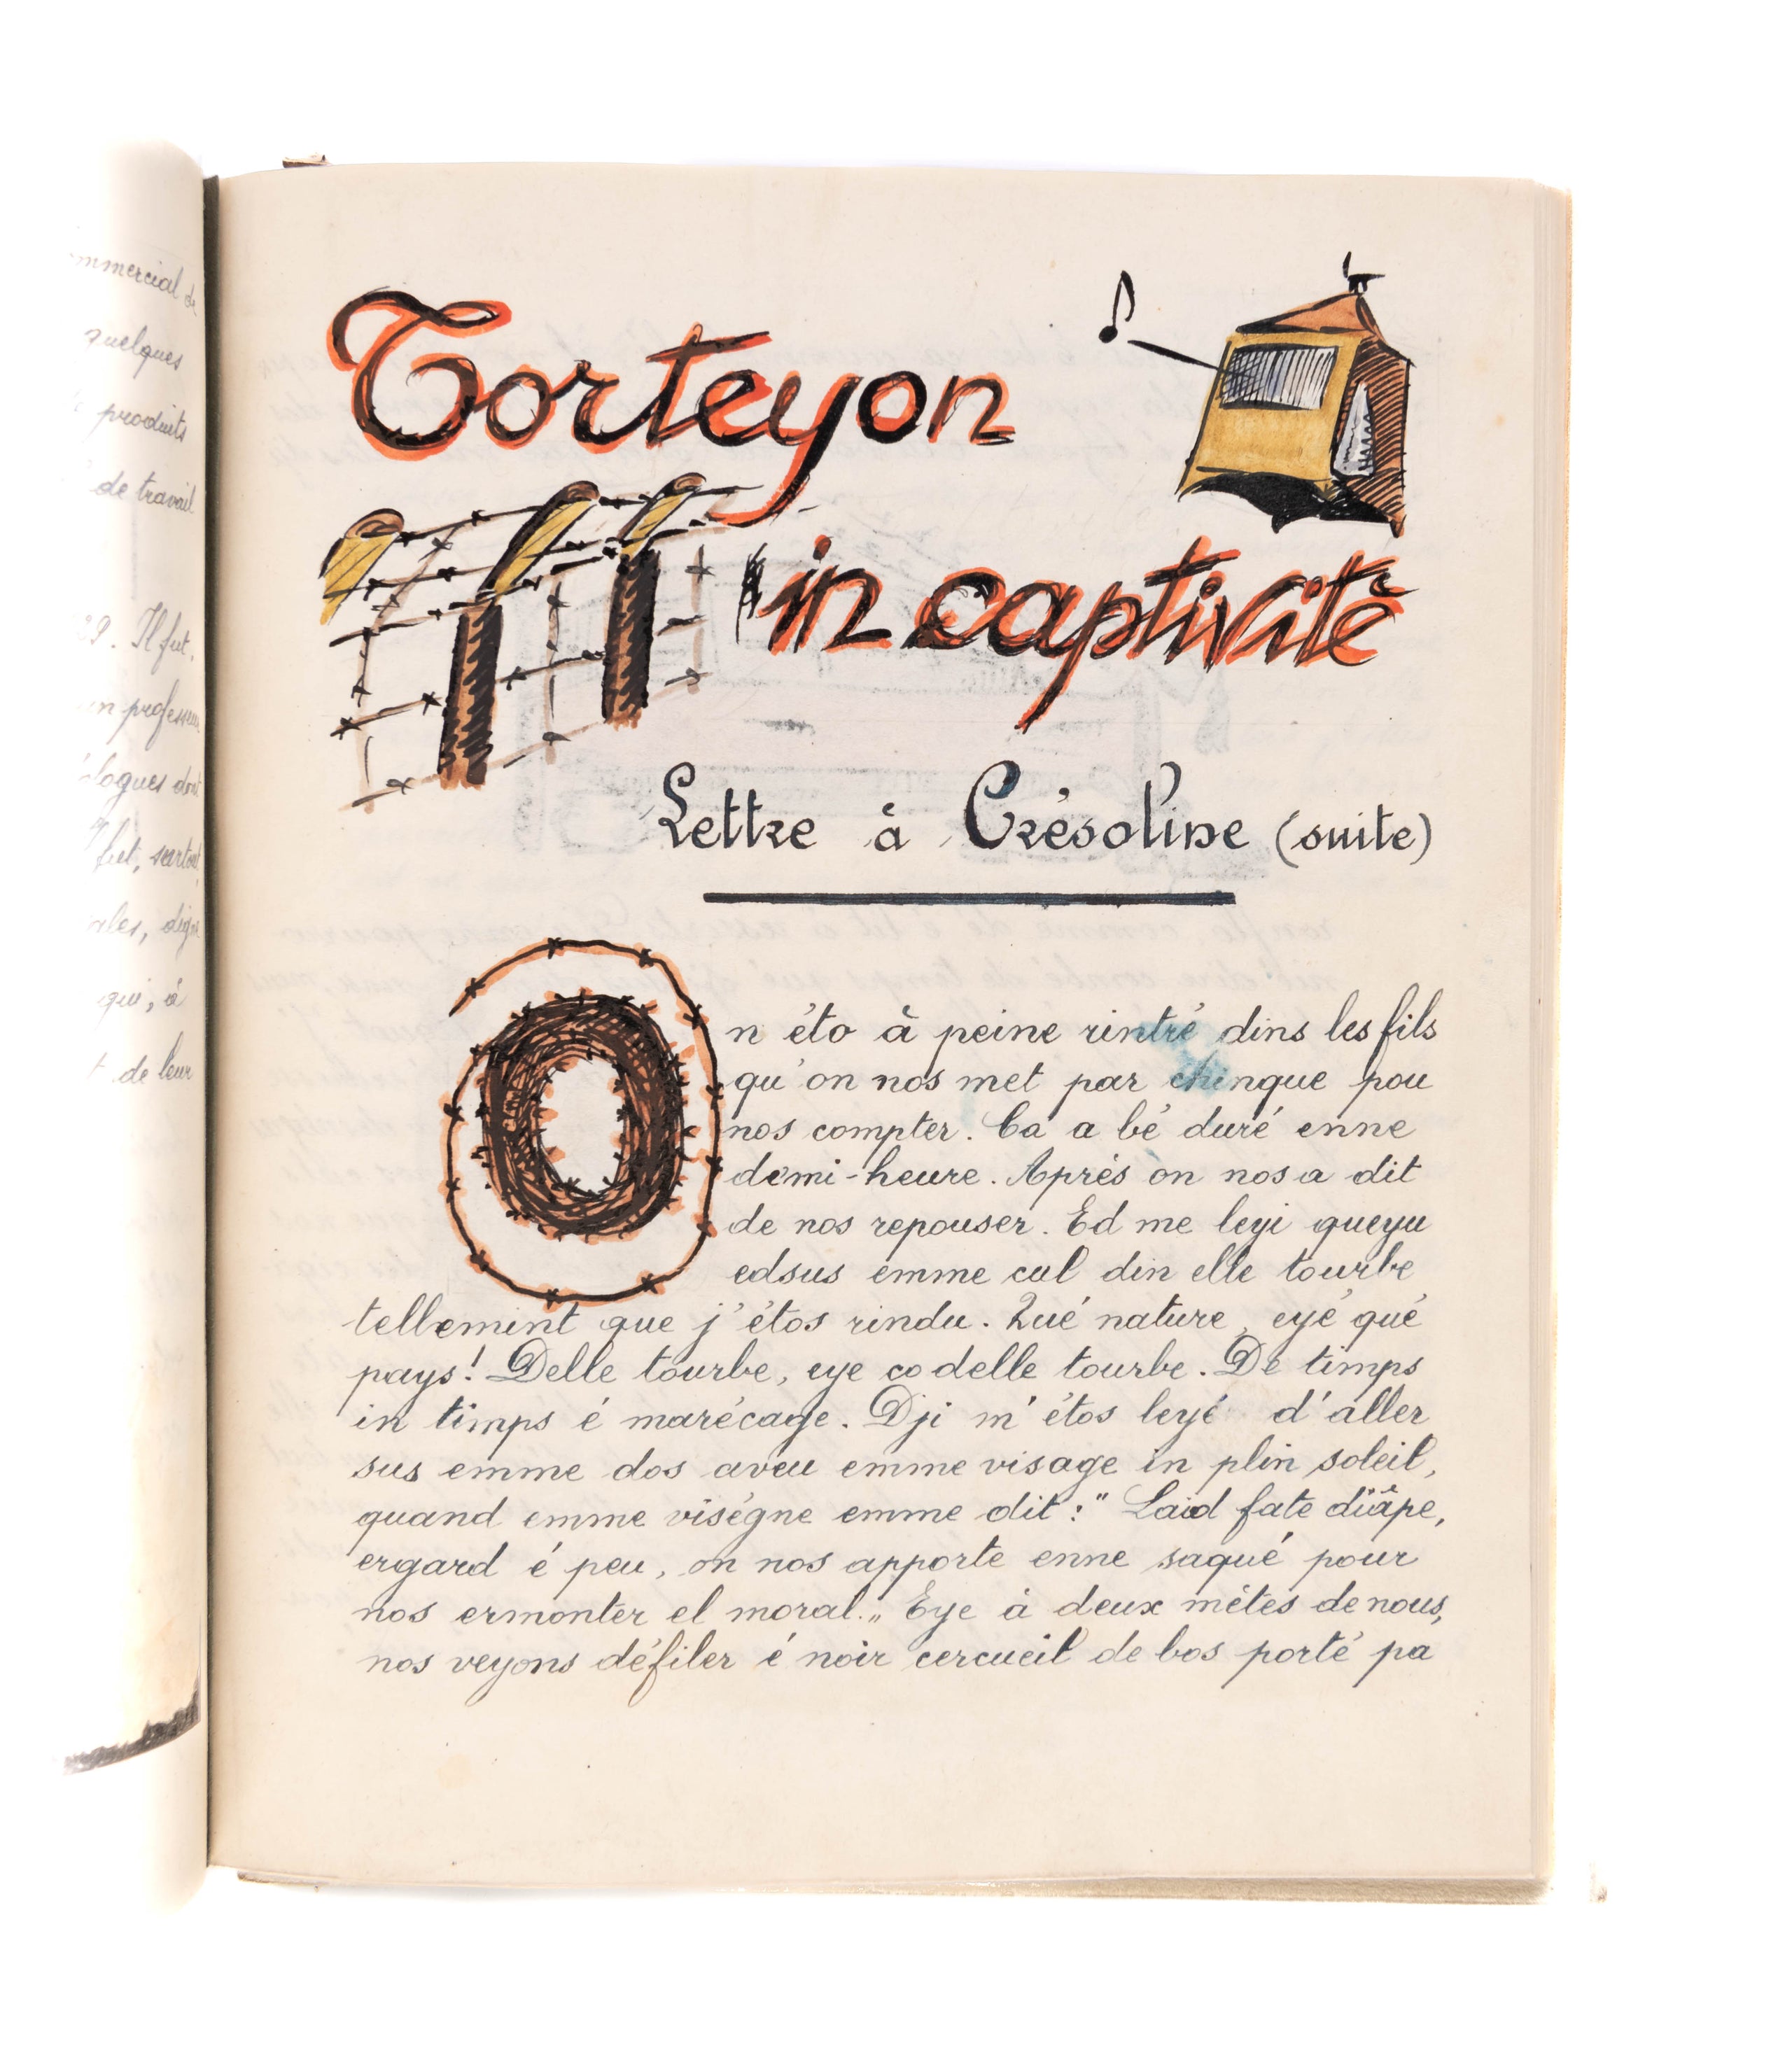 mmercial de
quelques
produits
de travail
Il fut,
un professeur
logues dont
fut, surtout,
ales, dign
qui, à
t de leur
Torteyon
in captivité
Lettre à Crésoline (suite)
On éto à peine rintré dins les fils
qu'on nos met par chingue pou
nos compter. Ca a bé duré enne
demi-heure. Après on nos a dit
de nos repouser. Ed me leyi queyu
edsus emme cul din elle tourbe
tellemint que j'étos rindu. Qué nature, eyé qué
pays! Delle tourbe, eye co delle tourbe. De timps
in timps é marécage. Dji m'étos leyé d'aller
sus emme dos aveu emme visage in plin soleil,
quand emme viségne emme dit : "Laid fate diâpe,
ergard é peu, on nos apporte enne saqué pour
nos ermonter el moral." Eye à deux mètes de nous,
nos veyons défiler é noir cercueil de bos porté pa